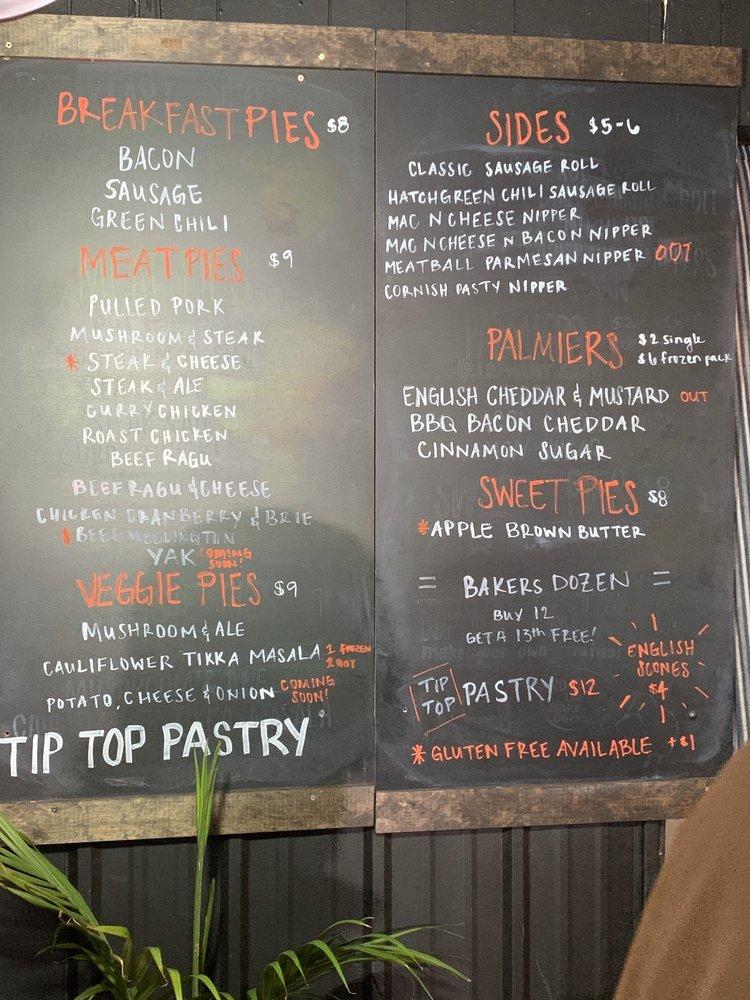 BREAKFAST PIES $8
BACON
SAUSAGE
GREEN CHILI
MEAT PIES $9
PULLED PORK
MUSHROOM & STEAK
* STEAK & CHEESE
STEAK & ALE
CURRY CHICKEN
ROAST CHICKEN
BEEF RAGU
BEEF RAGU & CHEESE
CHICKEN CRANBERRY & BRIE
* BEEF WELLINGTON
YAK COMING SOON!
VEGGIE PIES $9
MUSHROOM & ALE
CAULIFLOWER TIKKA MASALA 1 FROZEN
2 HOT
POTATO, CHEESE & ONION COMING SOON!
TIP TOP PASTRY
SIDES $5-6
CLASSIC SAUSAGE ROLL
HATCH GREEN CHILI SAUSAGE ROLL
MAC N CHEESE NIPPER
MAC N CHEESE N BACON NIPPER
MEATBALL PARMESAN NIPPER OUT
CORNISH PASTY NIPPER
PALMIERS $2 single
$6 frozen pack
ENGLISH CHEDDAR & MUSTARD OUT
BBQ BACON CHEDDAR
CINNAMON SUGAR
SWEET PIES $8
* APPLE BROWN BUTTER
= BAKERS DOZEN =
BUY 12
GET A 13th FREE!
ENGLISH
SCONES
$4
TIP TOP PASTRY $12
* GLUTEN FREE AVAILABLE +$1